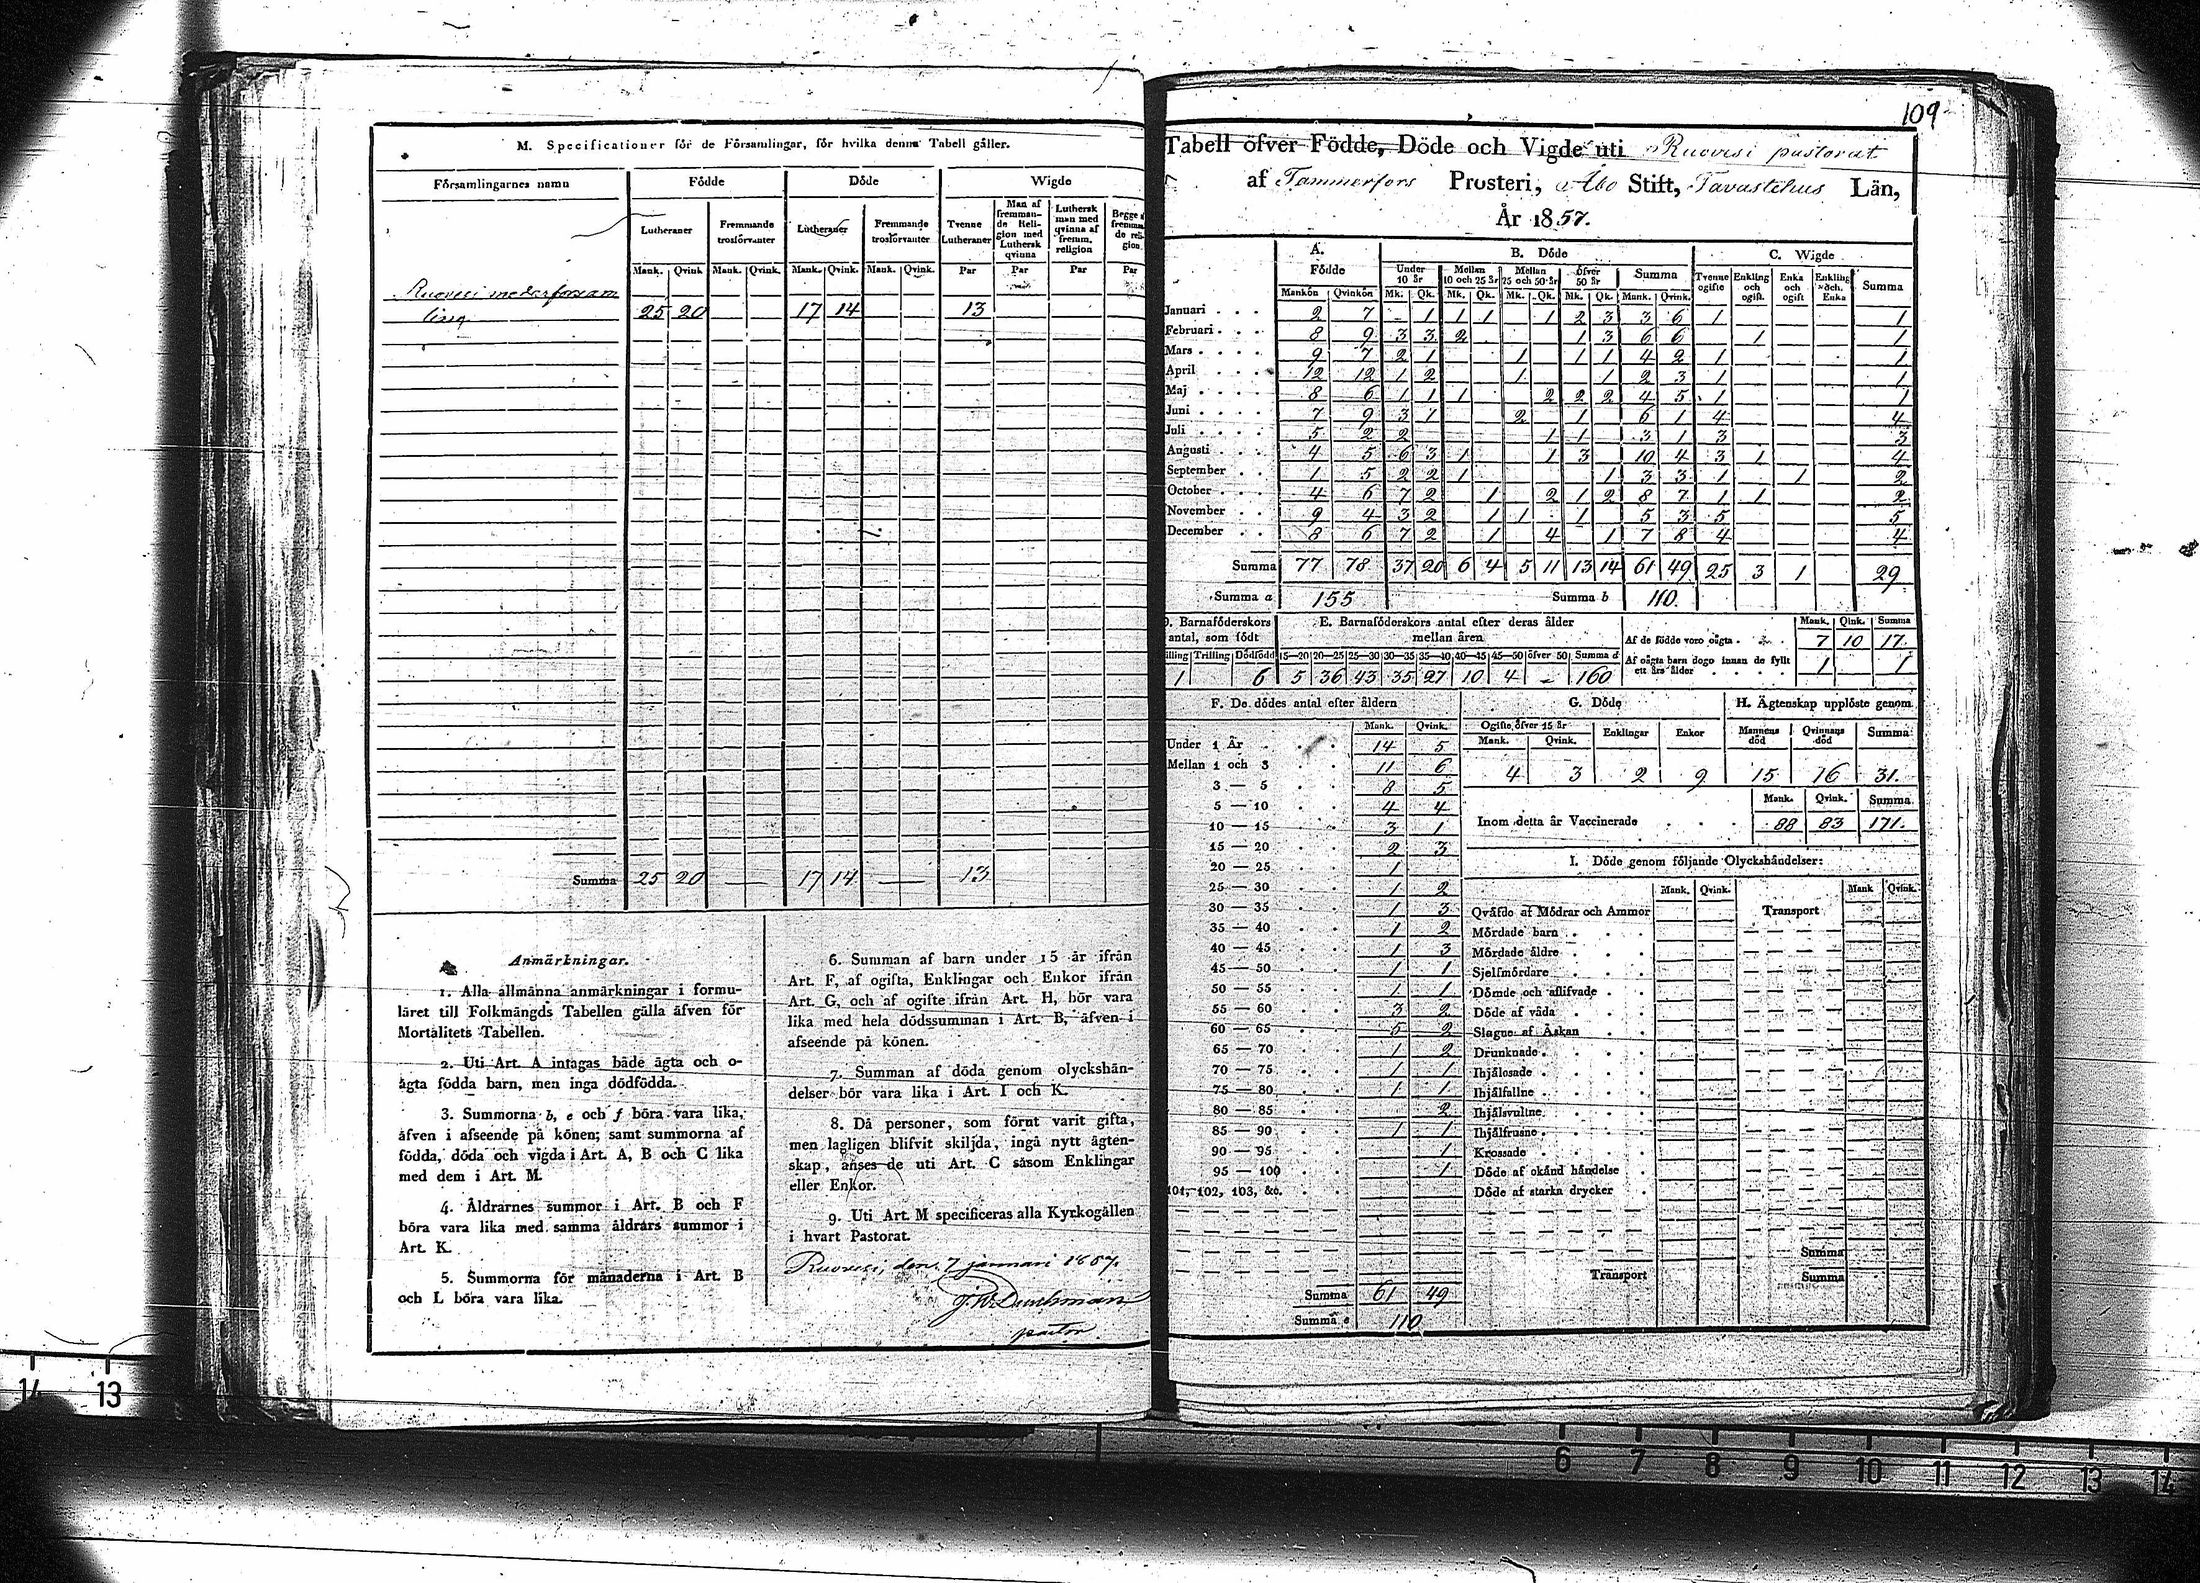 M. Specificationer för de Församlingar, för hvilka denna Tabell gäller.
Församlingarnes namn | Födde | Döde | Wigde
Lutheraner | Fremmande trosförvanter | Lutheraner | Fremmande trosförvanter | Tvenne Lutheraner | Man af fremmande Religion med Luthersk qvinna | Luthersk man med qvinna af fremm. religion | Begge
Mank. | Qvink. | Mank. | Qvink. | Mank. | Qvink. | Mank. | Qvink. | Par | Par | Par | Par
Ruovesi
ling 25 20 17 14 13
Summa 25 20 — 17 14 — 13
Anmärkningar.
1. Alla allmänna anmärkningar i formu-
läret till Folkmängds Tabellen gälla äfven för
Mortalitets Tabellen.
2. Uti Art. A intagas både ägta och o-
ägta födda barn, men inga dödfödda.
3. Summorna b, e och f böra vara lika,
äfven i afseende på könen; samt summorna af
födda, döda och vigda i Art. A, B och C lika
med dem i Art. M.
4. Åldrarnes summor i Art. B och F
böra vara lika med samma åldrars summor i
Art. K.
5. Summorna för månaderna i Art. B
och L böra vara lika.
6. Summan af barn under 15 år ifrån
Art. F, af ogifta, Enklingar och Enkor ifrån
Art. G, och af ogifte ifrån Art. H, bör vara
lika med hela dödssumman i Art. B, äfven i
afseende på könen.
7. Summan af döda genom olyckshän-
delser bör vara lika i Art. I och K.
8. Då personer, som förut varit gifta,
men lagligen blifvit skiljda, ingå nytt ägten-
skap, anses de uti Art. C såsom Enklingar
eller Enkor.
9. Uti Art. M specificeras alla Kyrkogällen
i hvart Pastorat.
Ruovesi, den 7 januari 1857.
pastor
109
Tabell öfver Födde, Döde och Vigde uti Ruovesi pastorat
af Tammerfors Prosteri, Åbo Stift, Tavastehus Län,
År 1857.
A. Födde | B. Döde | C. Wigde
Under 10 år | Mellan 10 och 25 år | Mellan 25 och 50 år | öfver 50 år | Summa | Tvenne ogifte | Enkling och ogift. | Enka och ogift | Enkling och Enka | Summa
Mankön | Qvinkön | Mk. | Qk. | Mk. | Qk. | Mk. | Qk. | Mk. | Qk. | Mank. | Qvink.
Januari 2 7 - 1 1 1 1 2 3 3 6 1 1
Februari 8 9 3 3 2 1 3 6 6 1 1
Mars 9 7 2 1 1 1 1 4 2 1 1
April 12 12 1 2 1 1 2 3 1 1
Maj 8 6 1 1 1 2 2 2 4 5 1 1
Juni 7 9 3 1 2 1 6 1 4 4
Juli 5 2 2 1 1 3 1 3 3
Augusti 4 5 6 3 1 1 3 10 4 3 1 4
September 1 5 2 2 1 1 3 3 1 1 2
October 4 6 7 2 1 2 1 2 8 7 1 1 2
November 9 4 3 2 1 1 1 5 3 5 5
December 8 6 7 2 1 4 1 7 8 4 4
Summa 77 78 37 20 6 4 5 11 13 14 61 49 25 3 1 29
Summa a 155 Summa b 110.
D. Barnaföderskors antal, som födt | E. Barnaföderskors antal efter deras ålder mellan åren | Mank. | Qink. | Summa
Trilling | Dödfödd | 15—20 | 20—25 | 25—30 | 30—35 | 35—40 | 40—45 | 45—50 | öfver 50 | Summa d
1 6 5 36 43 35 27 10 4 - 160
Af de födde voro oägta 7 10 17.
Af oägta barn dogo innan de fyllt ett års ålder 1 1
F. De dödes antal efter åldern
Mank. | Qvink.
Under 1 År 14 5
Mellan 1 och 3 11 6
3 — 5 8 5
5 — 10 4 4
10 — 15 3 1
15 — 20 2 3
20 — 25 1
25 — 30 1 2
30 — 35 1 3
35 — 40 1 2
40 — 45 1 3
45 — 50 1 1
50 — 55 1 1
55 — 60 3 2
60 — 65 5 2
65 — 70 1 2
70 — 75 1 1
75 — 80 1 1
80 — 85 2
85 — 90 1 1
90 — 95 1
95 — 100 1
101, 102, 103, &c.
Summa 61 49
Summa e 110
G. Döde | H. Ägtenskap upplöste genom
Ogifte öfver 15 år | Enklingar | Enkor | Mannens död | Qvinnans död | Summa
Mank. | Qvink.
4 3 2 9 15 16 31.
Mank. | Qvink. | Summa
Inom detta år Vaccinerade 88 83 171.
I. Döde genom följande Olyckshändelser:
Mank. | Qvink. | Mank | Qvink.
Qväfde af Mödrar och Ammor | Transport
Mördade barn
Mördade äldre
Sjelfmördare
Dömde och aflifvade
Döde af våda
Slagne af Åskan
Drunknade
Ihjälosade
Ihjälfallne
Ihjälsvultne
Ihjälfrusne
Krossade
Döde af okänd händelse
Döde af starka drycker
Summa
Transport | Summa
14 13
6 7 8 9 10 11 12 13 14